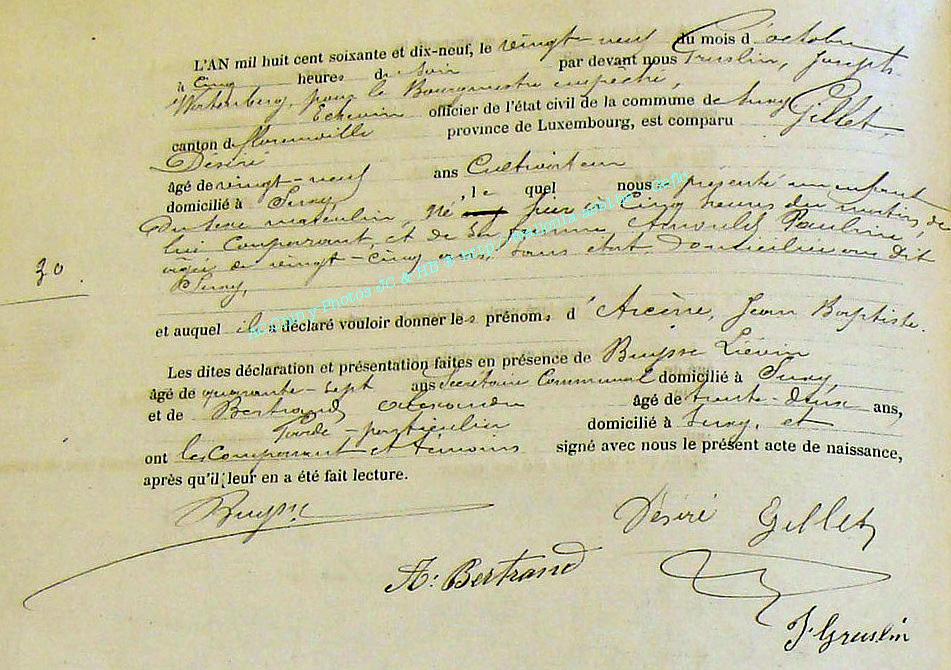 L'AN mil huit cent soixante et dix-neuf, le vingt-neuf du mois d'octobre
à Cinq heures du Soir par devant nous Gruslin, Joseph
pour le Bourgmestre empêché,
Echevin officier de l'état civil de la commune de Suxy
canton de florenville province de Luxembourg, est comparu Gillet,
Désiré
âgé de vingt-neuf ans Cultivateur
domicilié à Suxy, le quel nous a présenté un enfant
du sexe masculin, né hier à Cinq heures du matin, de
lui Comparant, et de sa femme Arnould Pauline
âgée de vingt-cinq ans, sans état, domiciliée au dit
Suxy,
30.
et auquel il a déclaré vouloir donner les prénoms d'Arcène, Jean Baptiste.
Les dites déclaration et présentation faites en présence de Buysse Liévin
âgé de quarante-sept ans Secrétaire Communal domicilié à Suxy
et de Bertrand Alexandre âgé de trente-deux ans,
Garde-particulier domicilié à Suxy, et
ont les Comparant et témoins signé avec nous le présent acte de naissance,
après qu'il leur en a été fait lecture.
Buysse
Désiré Gillet
A: Bertrand
J. Gruslin